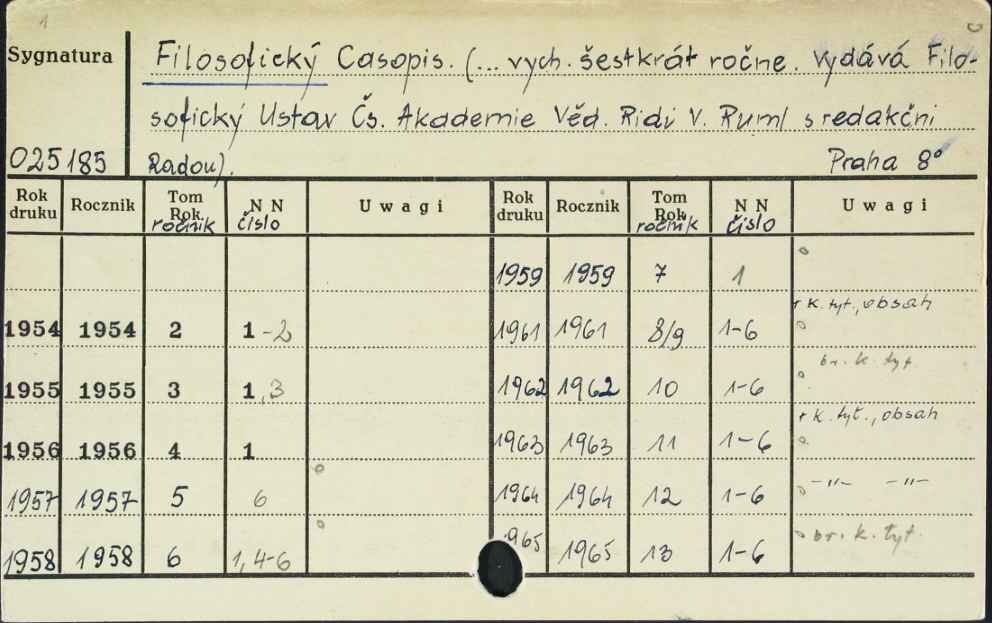 1
Sygnatura
025185
Filosofický Casopis. (... vych. šestkrát ročne. Vydává Filo-
sofický Ustav Čs. Akademie Věd. Ridi V. Ruml s redakčni
Radou). Praha 8°
Rok druku Rocznik Tom Rok. ročnik N N čislo Uwagi Rok druku Rocznik Tom Rok ročnik N N čislo Uwagi
1959 1959 7 1
1954 1954 2 1-2 1961 1961 8/9 1-6 + k. tyt., obsah
1955 1955 3 1,3 1962 1962 10 1-6 br. k. tyt.
1956 1956 4 1 1963 1963 11 1-6 + k. tyt., obsah
1957 1957 5 6 1964 1964 12 1-6 -"- -"-
1958 1958 6 1, 4-6 1965 1965 13 1-6 br. k. tyt.